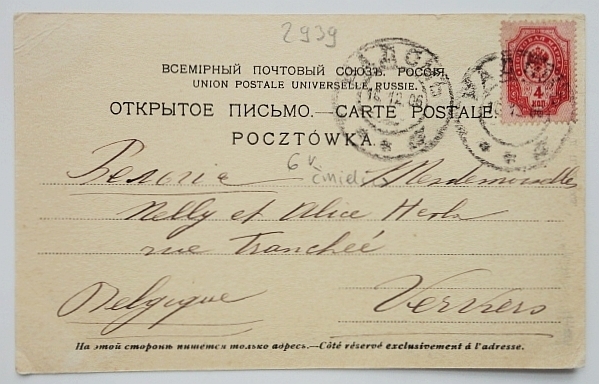 2939
ВСЕМІРНЫЙ ПОЧТОВЫЙ СОЮЗЪ. РОССІЯ.
UNION POSTALE UNIVERSELLE. RUSSIE.
ОТКРЫТОЕ ПИСЬМО.—CARTE POSTALE.
POCZTÓWKA.
4
КОП
6 к
Mesdemoiselles
Nelly et Alice
rue Tranchée
Belgique Verviers
На этой сторонѣ пишется только адресъ.—Côté réservé exclusivement á l'adresse.